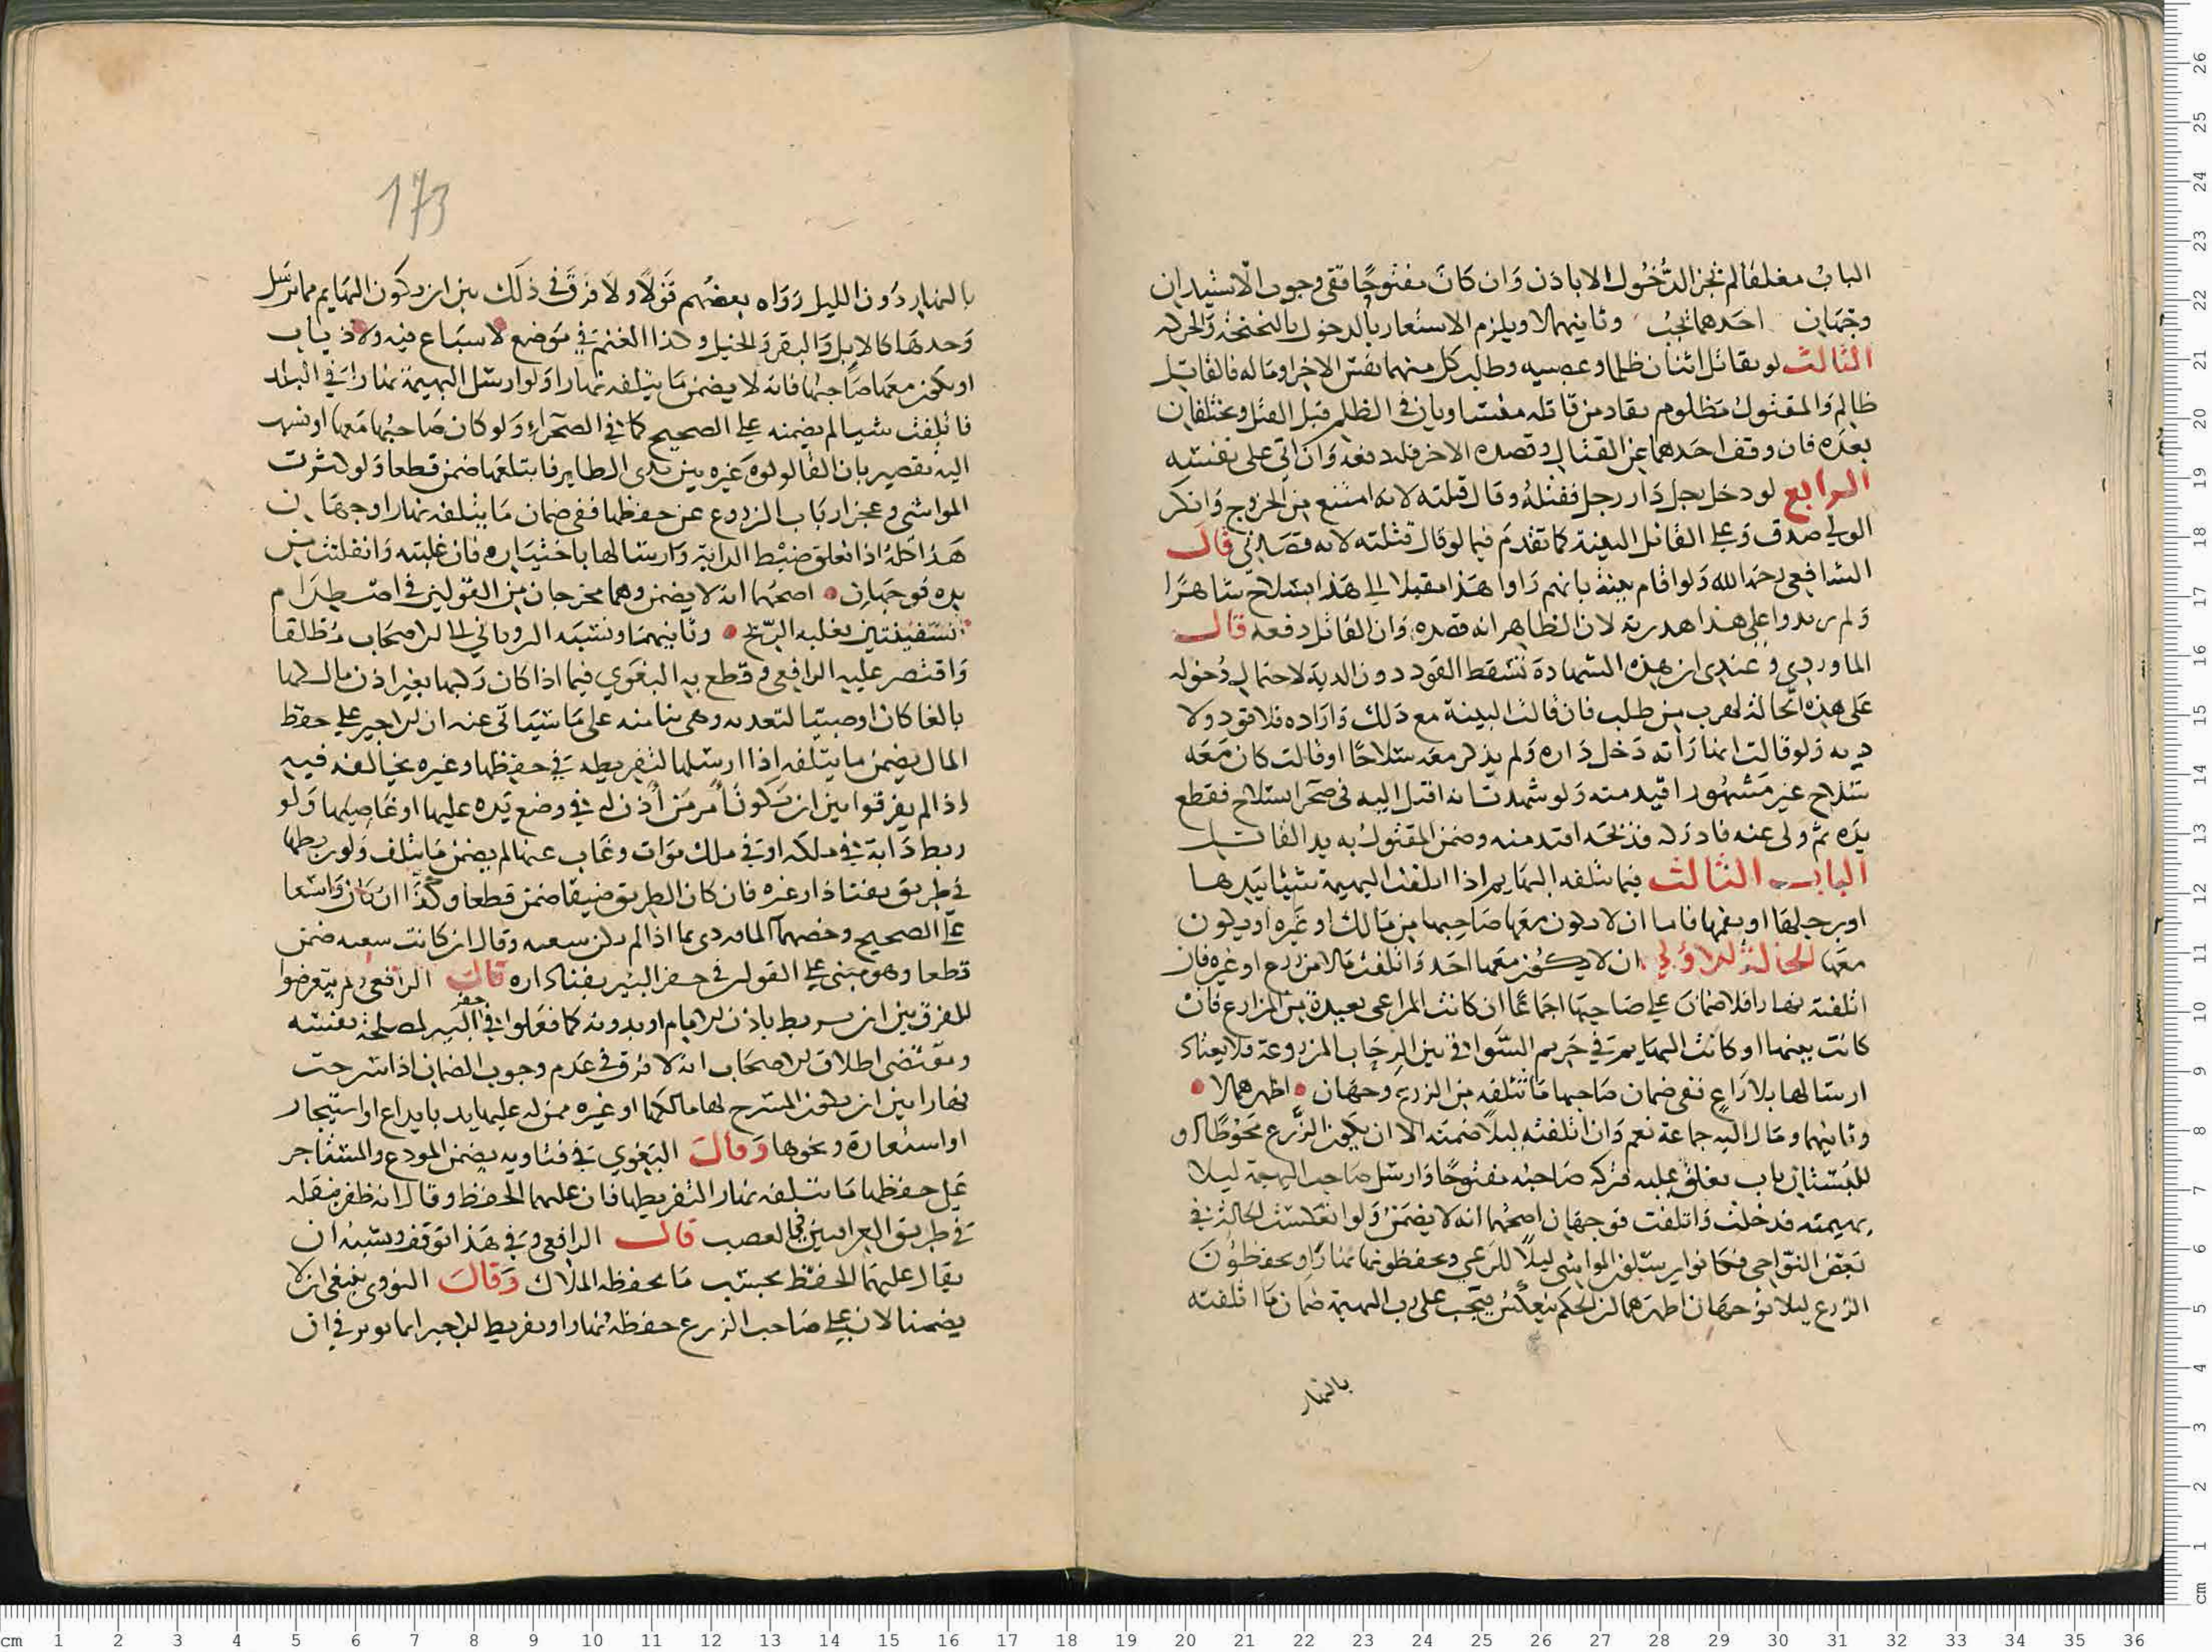 الباب مغلقا لم تجز الدخول الا باذن وان كان مفتوحا ففي وجوب الاستيذان
وجهان احدهما يجب وثانيهما لا ويلزم الاشعار بالدخول بالنحنحة والحركة
الثالث لو تقاتل اثنان ظلما وعصبيه وطلب كل منهما نفس الاخر او ماله فالقاتل
ظالم والمقتول مظلوم يقاد من قاتله متساويان في الظلم قبل القتل ومختلفان
بعده فان وقف احدهما عن القتال وقصده الاخر فله دفعه وان اتى على نفسه
الرابع لو دخل رجل دار رجل فقتله وقال قتلته لانه امتنع من الخروج وانكر
الولي صدق وعلى القاتل البينة كما تقدم فيما لو قال قتلته لانه قصدني قال
الشافعي رحمه الله ولو اقام بينة بانهم راوا هذا مقبلا الي هذا بسلاح شاهرا
ولم يريدوا على هذا اهدرته لان الظاهر انه قصده وان القاتل دفعه قال
الماوردي وعندي ان هذه الشهادة تسقط القود دون الدية لاحتمال دخوله
على هذه الحالة لهرب من طلب فان قالت البينة مع ذلك واراده فلا قود ولا
دية ولو قالت انها راته دخل داره ولم يذكر معه سلاحا او قالت كان معه
سلاح غير مشهور اقيد منه ولو شهدت انه اقبل اليه في صحرا بسلاح فقطع
يده ثم ولى عنه فادركه فذبحه اقتد منه وضمن المقتول به يد القاتل
الباب الثالث فيما تتلفه البهايم اذا اتلفت البهيمة شيئا بيدها
او رجلها او بفمها فاما ان لا يكون معها صاحبها من مالك او غيره او يكون
معها الحالة الاولي ان لا يكون معها احد واتلفت مالا من زرع او غيره فان
اتلفته نهارا فلا ضمان على صاحبها اجماعا ان كانت المراعي بعيدة من المزارع فان
كانت بينهما او كانت البهايم ترعى في حريم السواقي بين الرحاب المزروعة ولا يعتاد
ارسالها بلا راع ففي ضمان صاحبها ما تتلفه من الزرع وجهان اظهرهما لا
وثانيهما ومال اليه جماعة نعم وان اتلفته ليلا ضمنه الا ان يكون الزرع محوطا او
للبستان باب يغلق عليه فتركه صاحبه مفتوحا وارسل صاحب البهيمة ليلا
بهيمته فدخلت واتلفت فوجهان اصحهما انه لا يضمن ولو انعكست الحالة في
بعض النواحي فكانوا يرسلون المواشي ليلا للرعي ويحفظونها نهارا ويحفظون
الزرع ليلا فوجهان اظهرهما ان الحكم ينعكس فيجب على رب البهيمة ضمان ما اتلفته
بالنهار
173
بالنهار دون الليل ورواه بعضهم قولا ولا فرق في ذلك بين ان يكون البهايم مما ترسل
وحدها كالابل والبقر والخيل وكذا الغنم في موضع لا سباع فيه ولا ذياب
او يكون معها صاحبها فانه لا يضمن ما يتلفه نهارا ولو ارسل البهيمة نهارا في البلد
فاتلفت شيا لم يضمنه على الصحيح كما في الصحراء ولو كان صاحبها معها او نسب
اليه تقصير بان القا لولوة غيره بين يدى الطاير فابتلعها ضمن قطعا ولو كثرت
المواشي وعجز ارباب الزروع عن حفظها ففي ضمان ما يتلفه نهارا وجهان
هذا كله اذا تعلق ضبط الدابة وارسالها باختياره فان غلبته وانفلتت من
يده فوجهان اصحهما انه لا يضمن وهما مخرجان من القولين في اصطدام
السفينتين بغلبه الريح وثانيهما ونسبه الروياني الى الاصحاب مطلقا
واقتصر عليه الرافعي وقطع به البغوي فيما اذا كان ركبها بغير اذن مالكها
بالغا كان او صبيا لتعديه وهي بنا منه على ما سياتي عنه ان الاجير على حفظ
المال يضمن ما يتلفه اذا ارسلها لتفريطه في حفظها وغيره يخالفه فيه
اذا لم يفرقوا بين ان يكون امر من اذن له في وضع يده عليها او غاصبها ولو
ربط دابة في ملكه او في ملك موات وغاب عنها لم يضمن ما يتلف ولو ربطها
في طريق بفنا دار غيره فان كان الطريق ضيقا ضمن قطعا وكذا ان كان واسعا
على الصحيح وخصهما الماوردي بما اذا لم يكن سعيه وقال ان كانت سعبه ضمن
قطعا وهو مبني على القول في حفر البئر بفناء داره قال الرافعي ولم يتعرضوا
للفرق بين ان يربط باذن الامام او بدونه كما فعلوا في حفر البير لمصلحة نفسه
ومقتضى اطلاق الاصحاب انه لا فرق في عدم وجوب الضمان اذا سرحت
نهارا بين ان يكون المسرح لها مالكها او غيره ممن له عليها يد بايداع او استيجار
او استعارة ونحوها وقال البغوي في فتاويه يضمن المودع والمستاجر
على حفظها ما تتلفه نهارا لتفريطها فان عليهما الحفظ وقال انه ظفر بنقله
في طريق العراقيين في الغصب قال الرافعي وفي هذا توقف ويشبه ان
يقال عليهما الحفظ بحسب ما يحفظه الملاك وقال النووي ينبغي ان لا
يضمنا لان على صاحب الزرع حفظه نهارا وتفريط الاجير انما يوثر في ان